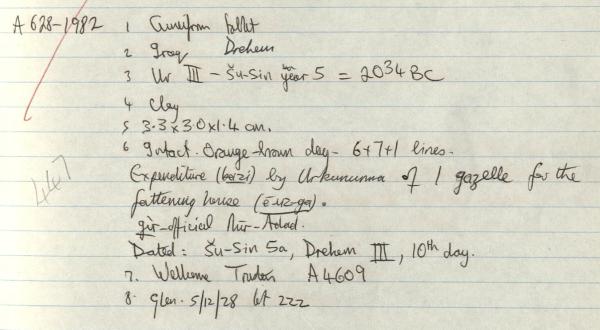 A 628-1982 1 Cuneiform tablet
2 Iraq Drehem
3 Ur III - Šu-Sin year 5 = 2034 BC
4 Clay
5 3.3 x 3.0 x 1.4 cm.
6 Intact. Orange-brown clay - 6+7+1 lines.
Expenditure (ba-zi) by Urkununna of 1 gazelle for the
fattening house (é-uz-ga).
gìr-official Nūr-Adad.
Dated: Šu-Sin 5a, Drehem III, 10th day.
7. Wellcome Trustees A4609
8. Glen. 5/12/28 lot 222
447